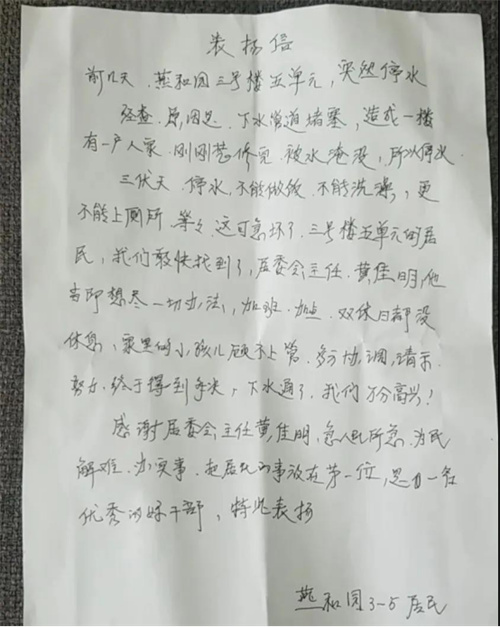 表扬信
前几天.燕和园三号楼五单元,突然停水
经查.原因是.下水管道堵塞,造成一楼
有一户人家.刚刚装修完.被水淹没,所以停水.
三伏天.停水.不能做饭.不能洗澡,更
不能上厕所.等等.这可急坏了.三号楼五单元的居
民,我们敢快找到了,居委会主任.黄佳明,他
当即想尽一切办法,加班.加点.双休日都没
休息,家里的小孩儿顾不上管.多方协调,请示.
努力.终于得到解决,下水通了.我们十分高兴!
感谢居委会主任黄佳明,急人民所急.为民
解难.办实事.把居民的事放在第一位,是一名
优秀的好干部,特此表扬
燕和园3-5居民